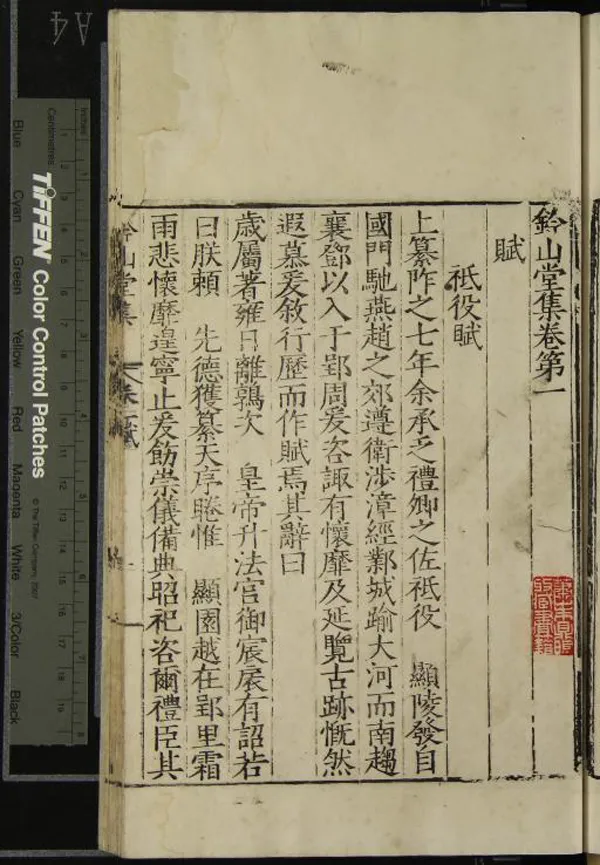 鈐山堂集卷第一
賦
祗役賦
上纂阼之七年余承乏禮卿之佐祗役　顯陵發自
國門馳燕趙之郊遵衛涉漳經鄴城踰大河而南趨
襄鄧以入于郢周爰咨諏有懷靡及延覽古跡慨然
遐慕爰敘行歷而作賦焉其辭曰
歲屬著雍日離鶉次　皇帝升法宮御宸扆有詔若
曰朕賴　先德獲纂天序睠惟　顯園越在郢里霜
雨悲懷靡遑寧止爰飭崇儀備典昭祀咨爾禮臣其
鈐山堂集
A4
Inches
Centimetres
TIFFEN Color Control Patches
© The Tiffen Company, 2007
Blue
Cyan
Green
Yellow
Red
Magenta
White
3/Color
Black